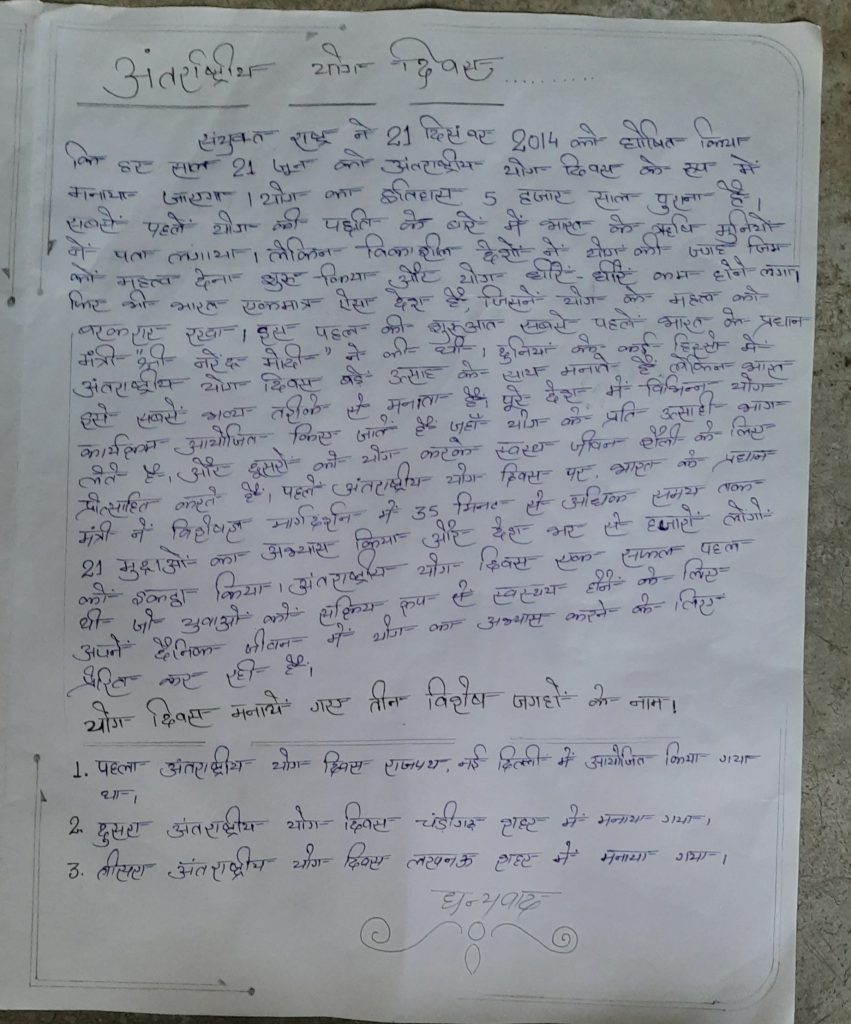 अंतर्राष्ट्रीय योग दिवस..........
संयुक्त राष्ट्र ने 21 दिसंबर 2014 को घोषित किया
कि हर साल 21 जून को अंतराष्ट्रीय योग दिवस के रूप में
मनाया जाएगा। योग का इतिहास 5 हजार साल पुराना है।
सबसे पहले योग की पद्धति के बारे में भारत के ऋषि मुनियों
ने पता लगाया। लेकिन विकाशील देशों ने योग की जगह जिम
को महत्व देना शुरू किया और योग धीरे-धीरे कम होने लगा।
फिर भी भारत एकमात्र ऐसा देश है, जिसने योग के महत्व को
बरकरार रखा। इस पहल की शुरुआत सबसे पहले भारत के प्रधान
मंत्री "श्री नरेंद्र मोदी" ने की थी। दुनियां के कई हिस्सों में
अंतराष्ट्रीय योग दिवस बड़े उत्साह के साथ मनाते है, लेकिन भारत
इसे सबसे भव्य तरीके से मनाता है। पूरे देश में विभिन्न योग
कार्यक्रम आयोजित किए जाते है जहाँ योग के प्रति उत्साही भाग
लेते है, और दूसरों को योग करके स्वस्थ जीवन शैली के लिए
प्रोत्साहित करते है। पहले अंतराष्ट्रीय योग दिवस पर, भारत के प्रधान
मंत्री ने विशेषज्ञ मार्गदर्शन में 35 मिनट से अधिक समय तक
21 मुद्राओं का अभ्यास किया और देश भर से हजारों लोगों
को इकट्ठा किया। अंतराष्ट्रीय योग दिवस एक सफल पहल
थी जो युवाओं को सक्रिय रूप से स्वस्थ्य होने के लिए
अपने दैनिक जीवन में योग का अभ्यास करने के लिए
प्रेरित कर रही है।
योग दिवस मनायें गए तीन विशेष जगहों के नाम।
1. पहला अंतराष्ट्रीय योग दिवस राजपथ, नई दिल्ली में आयोजित किया गया
था।
2. दुसरा अंतराष्ट्रीय योग दिवस चंडीगढ़ शहर में मनाया गया।
3. तीसरा अंतराष्ट्रीय योग दिवस लखनऊ शहर में मनाया गया।
धन्यवाद